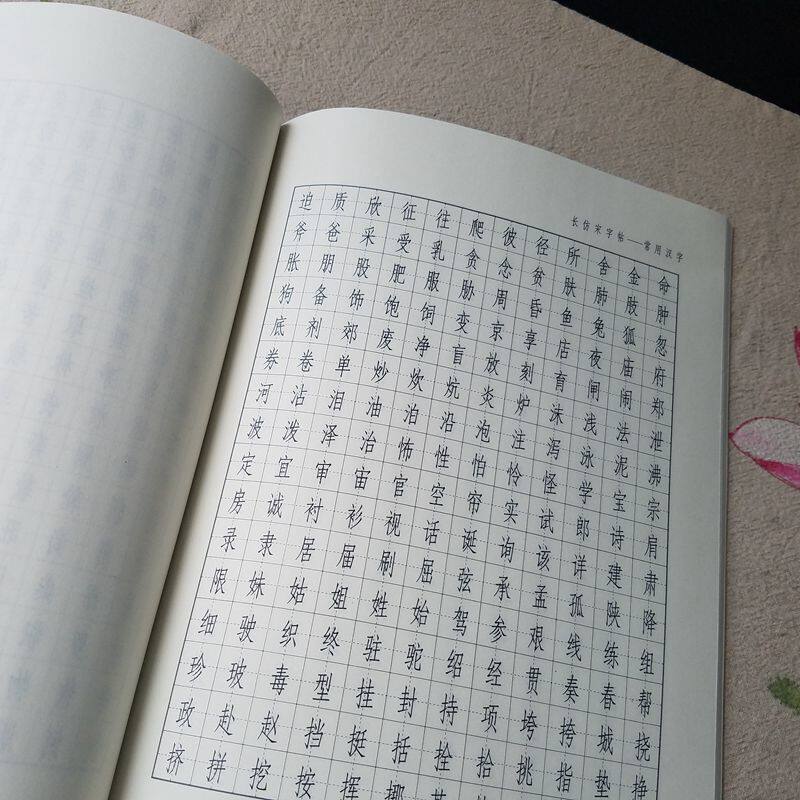 长仿宋字帖——常用汉字
迫质欣征往爬彼径所舍金命
斧爸采受乳贪念贫肤肺肢肿
胀朋股肥服胁周昏鱼兔狐忽
狗备饰饱饲变京享店夜庙府
底剂郊废净盲放刻育闸闹郑
券卷单炒炊炕炎炉沫浅法泄
河沾泪油泊沿泡注泻泳泥沸
波泼泽治怖性怕怜怪学宝宗
定宜审宙官空帘实试郎诗肩
房诚衬衫视话诞询该详建肃
录隶居届刷屈弦承孟孤陕降
限妹姑姐姓始驾参艰线练组
细驶织终驻驼绍经贯奏春帮
珍玻毒型挂封持项垮挎城挠
政赴赵挡挺括拴拾挑指垫挣
挤拼挖按挥挪